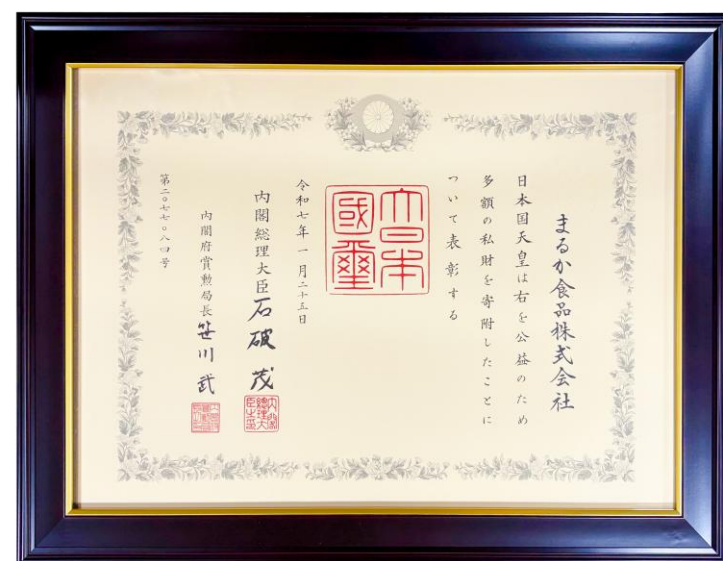 まるか食品株式会社
日本国天皇は右を公益のため
多額の私財を寄附したことに
ついて表彰する
大日本
國璽
令和七年一月二十五日
内閣総理大臣石破茂
内閣総理大
臣之印
内閣府賞勲局長笹川武
第二〇七七〇八四号